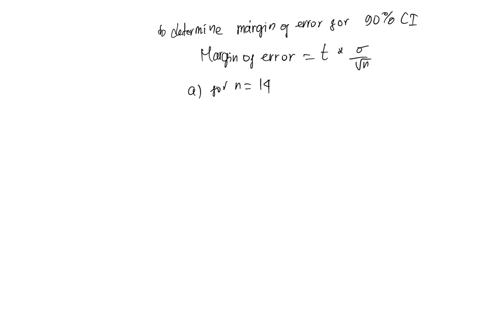 to determine margin of error for 90% CI
Margin of error = t * σ/√n
a) for n = 14